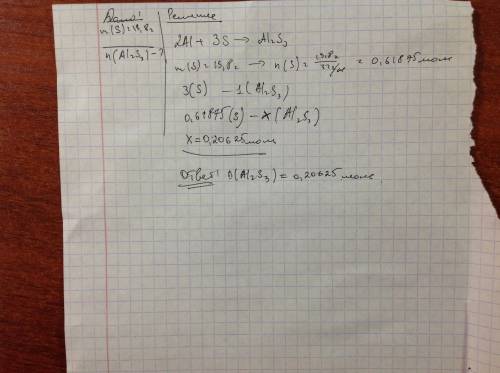 Дано:
m(S)=19,8г
n(Al₂S₃)-?
Решение
2Al + 3S → Al₂S₃
m(S)=19,8г → n(S)= 19,8г / 32г/моль = 0,61875моль
3(S) - 1(Al₂S₃)
0,61875(S) - x(Al₂S₃)
x=0,20625моль
Ответ: n(Al₂S₃)=0,20625моль